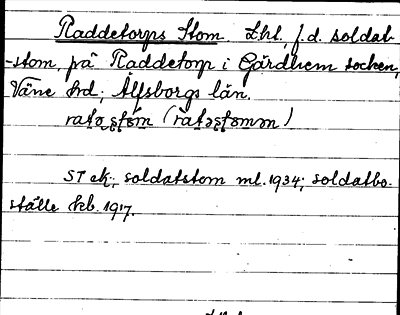 Raddetorps Stom Lht, f.d. soldat-
-stom, på Raddetorp i Gärdhem socken,
Väne hd; Älfsborgs län.
ST ek; soldatstom ml. 1934; soldatbo-
ställe kb. 1917.